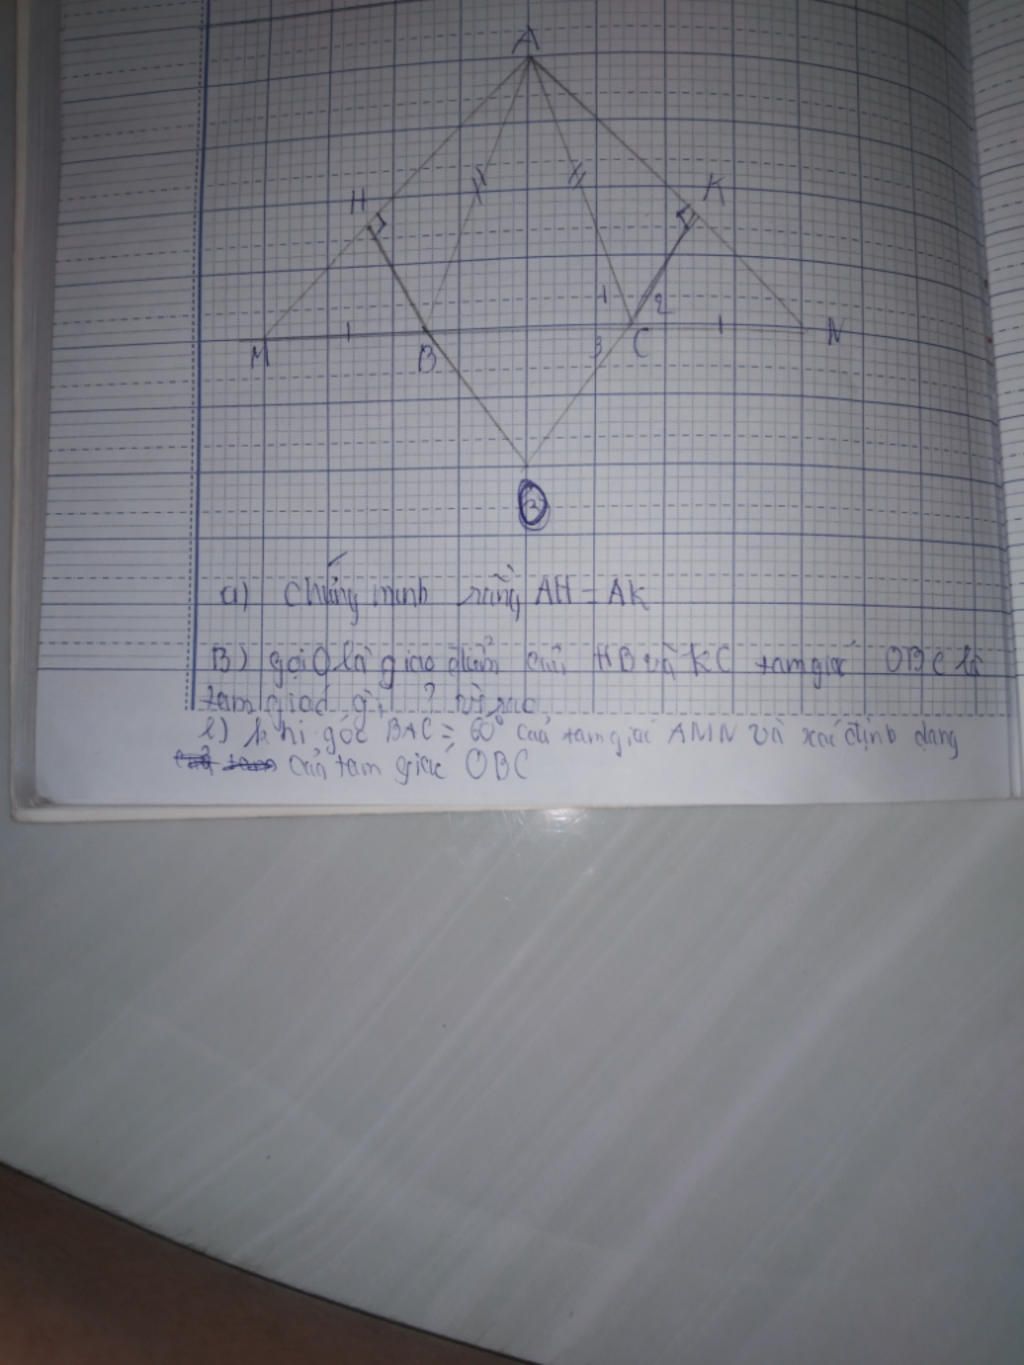 A
H
K
1
2
M
B
3
C
N
a) Chứng minh rằng AH = AK
B) gọi O là giao điểm của HB và KC tam giác OBC là
tam giác gì ? vì sao
l) khi góc BAC = 60° của tam giác AMN và xác định dạng
của tam giác OBC